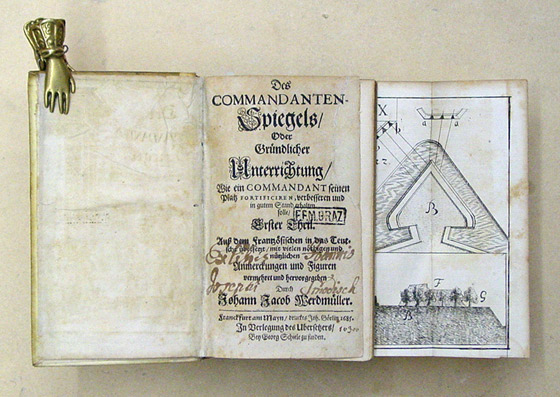 Des
COMMANDANTEN-
Spiegels/
Oder
Gründlicher
Unterrichtung/
Wie ein COMMANDANT seinen
Platz FORTIFICIREN, verbesseren und
in gutem Stand erhalten
solle/
F.F.M. GRAZ
Erster Theil.
Auß dem Frantzösischen in das Teut-
sche übersetzt/ mit vielen nöthigen und
nützlichen
Anmerckungen und Figuren
vermehret und hervorgegeben
Durch
Johann Jacob Werdmüller.
Franckfurt am Mayn/ druckts Joh. Görlin 1685.
In Verlegung des Ubersetzers/
Bey Georg Schiele zu finden.
X
a
a
b
B
F
G
B